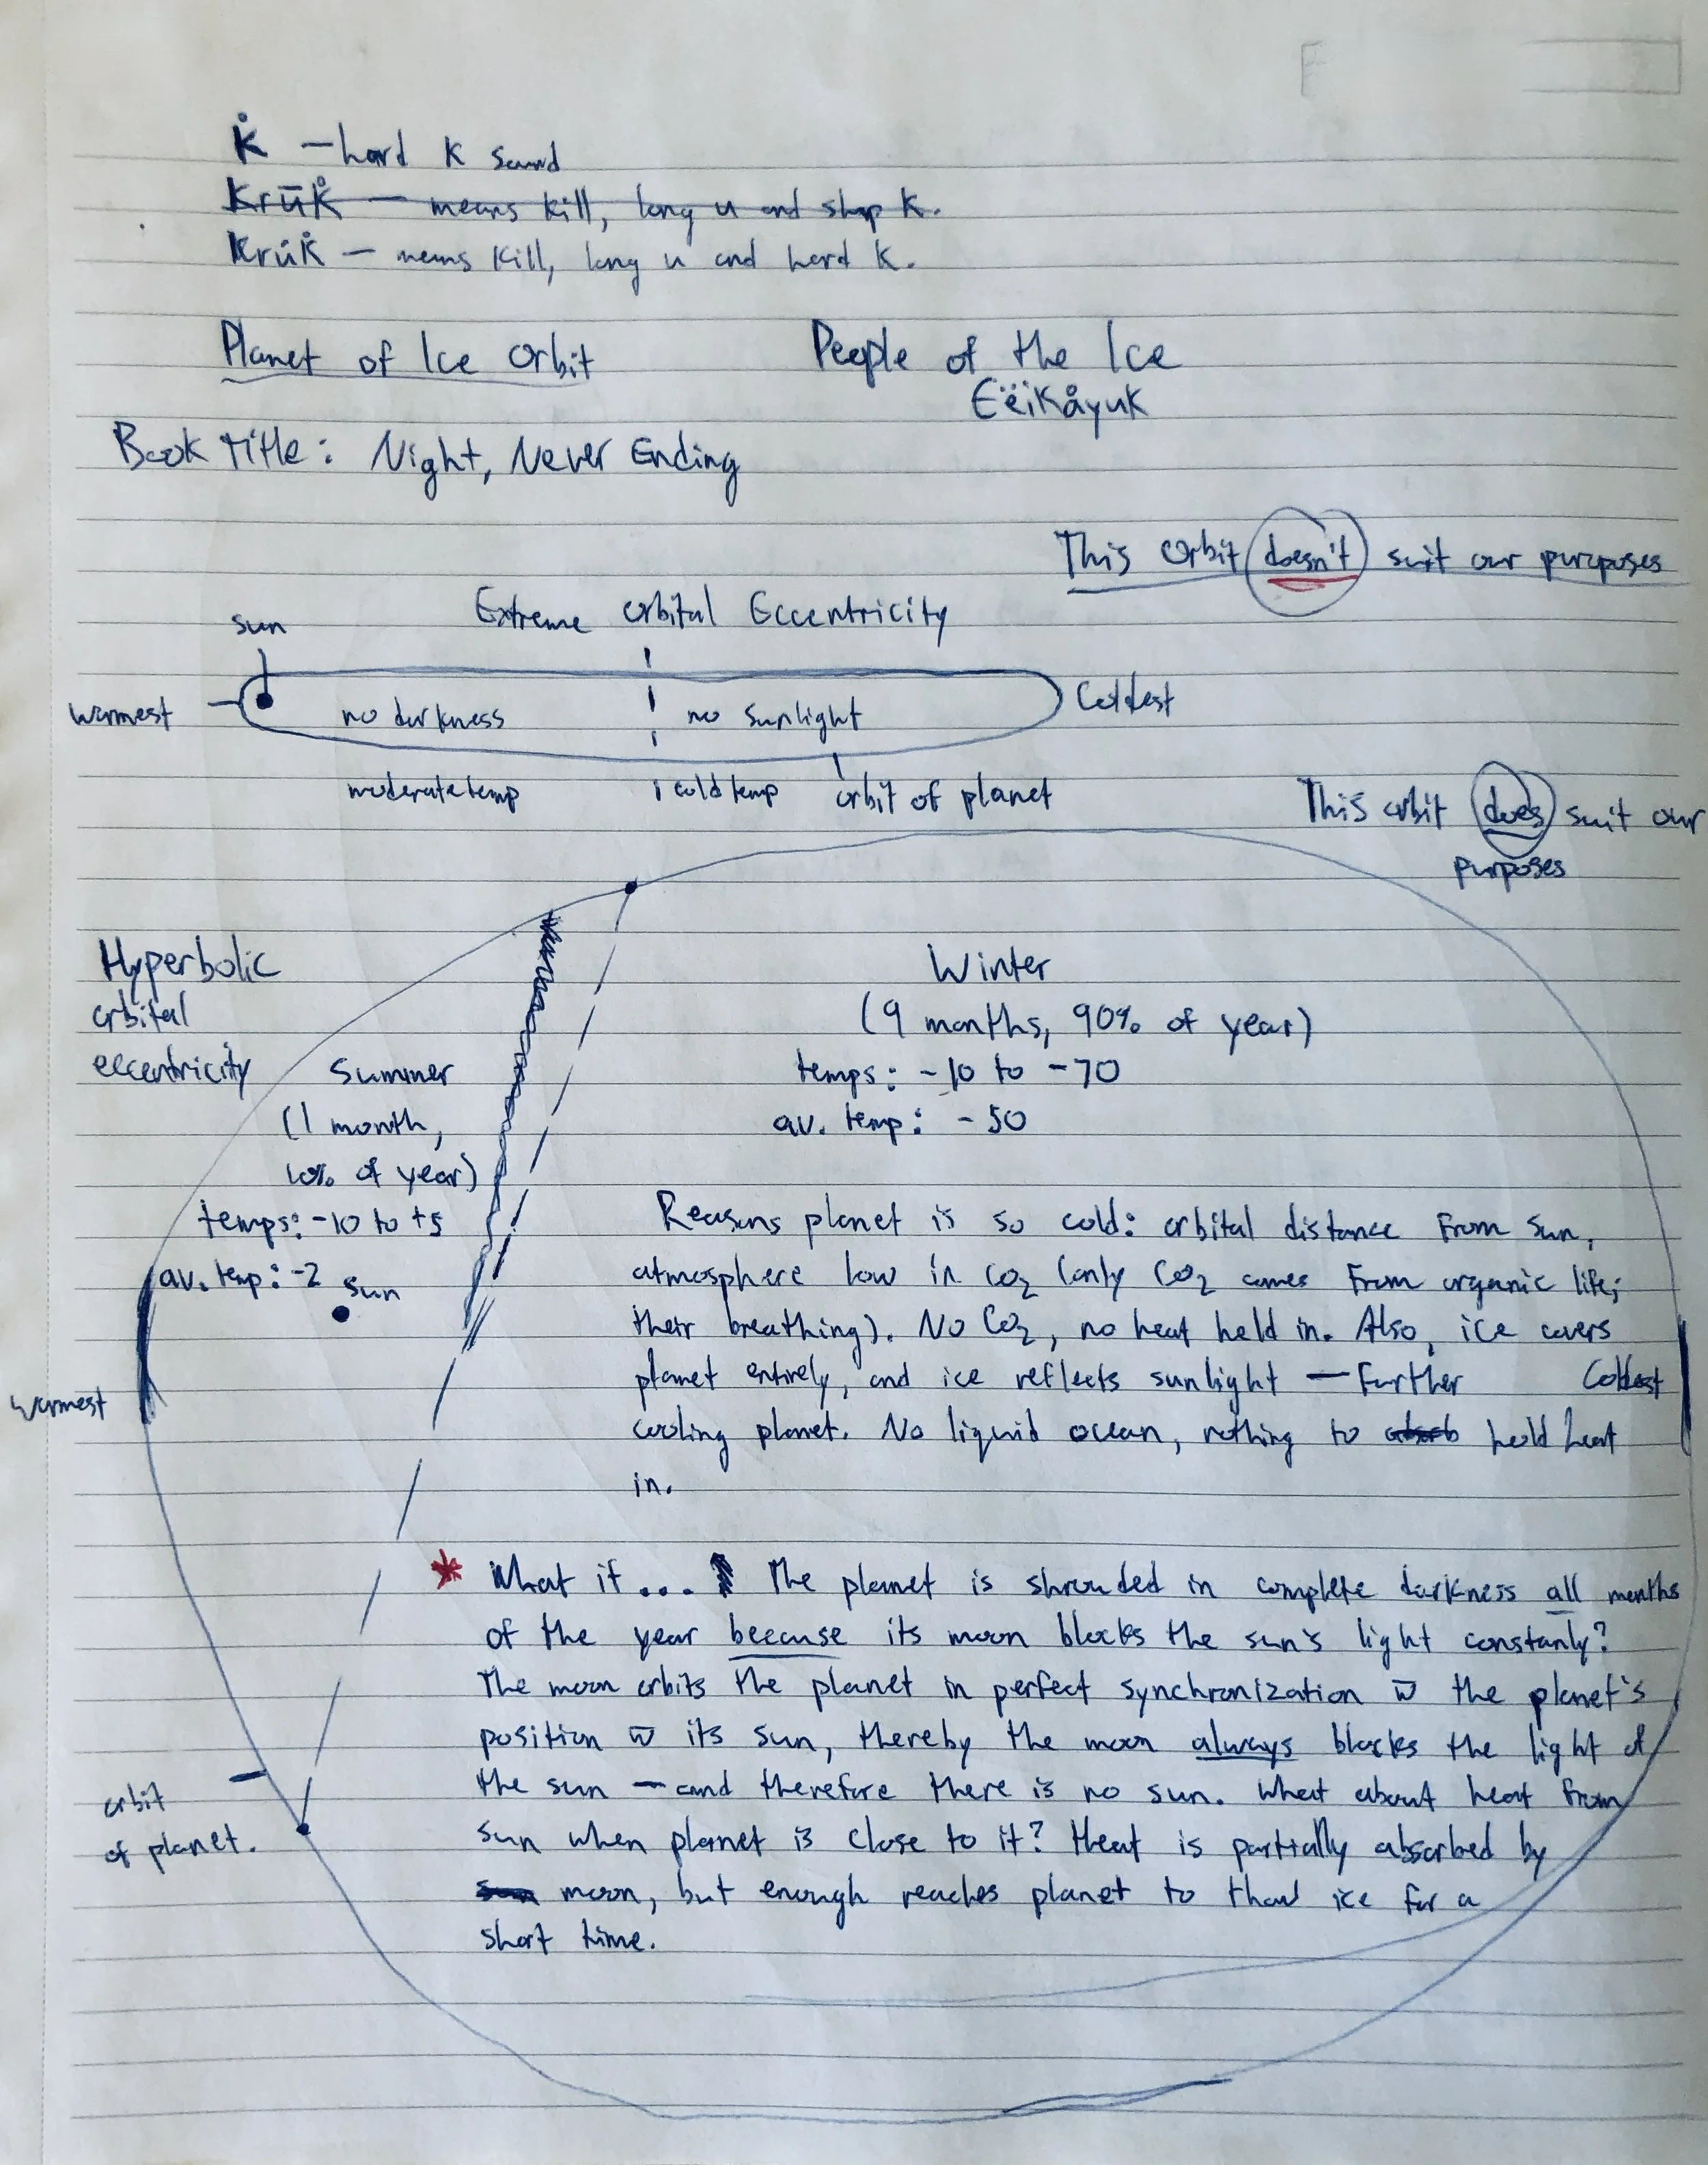 k̊ — hard k sound
Krūk̊ — means kill, long u and sharp k.
Krúk̊ — means kill, long u and hard k.
Planet of Ice Orbit
People of the Ice
Eëikåyuk
Book Title: Night, Never Ending
This orbit doesn't suit our purposes
Extreme orbital Eccentricity
sun
warmest
no darkness
no sunlight
Coldest
moderate temp
cold temp
orbit of planet
This orbit does suit our
purposes
Hyperbolic
orbital
eccentricity
Summer
(1 month,
10% of year)
temps: -10 to +5
av. temp: -2
sun
warmest
Winter
(9 months, 90% of year)
temps: -10 to -70
av. temp: -50
Reasons planet is so cold: orbital distance from sun,
atmosphere low in CO2 (only CO2 comes from organic life;
their breathing). No CO2, no heat held in. Also, ice covers
planet entirely, and ice reflects sunlight — further
Coldest
cooling planet. No liquid ocean, nothing to absorb hold heat
in.
* What if... The planet is shrouded in complete darkness all months
of the year because its moon blocks the sun's light constanly?
The moon orbits the planet in perfect synchronization w̅ the planet's
position w̅ its sun, thereby the moon always blocks the light of
the sun — and therefore there is no sun. What about heat from
sun when planet is close to it? Heat is partially absorbed by
sun moon, but enough reaches planet to thaw ice for a
short time.
orbit
of planet.